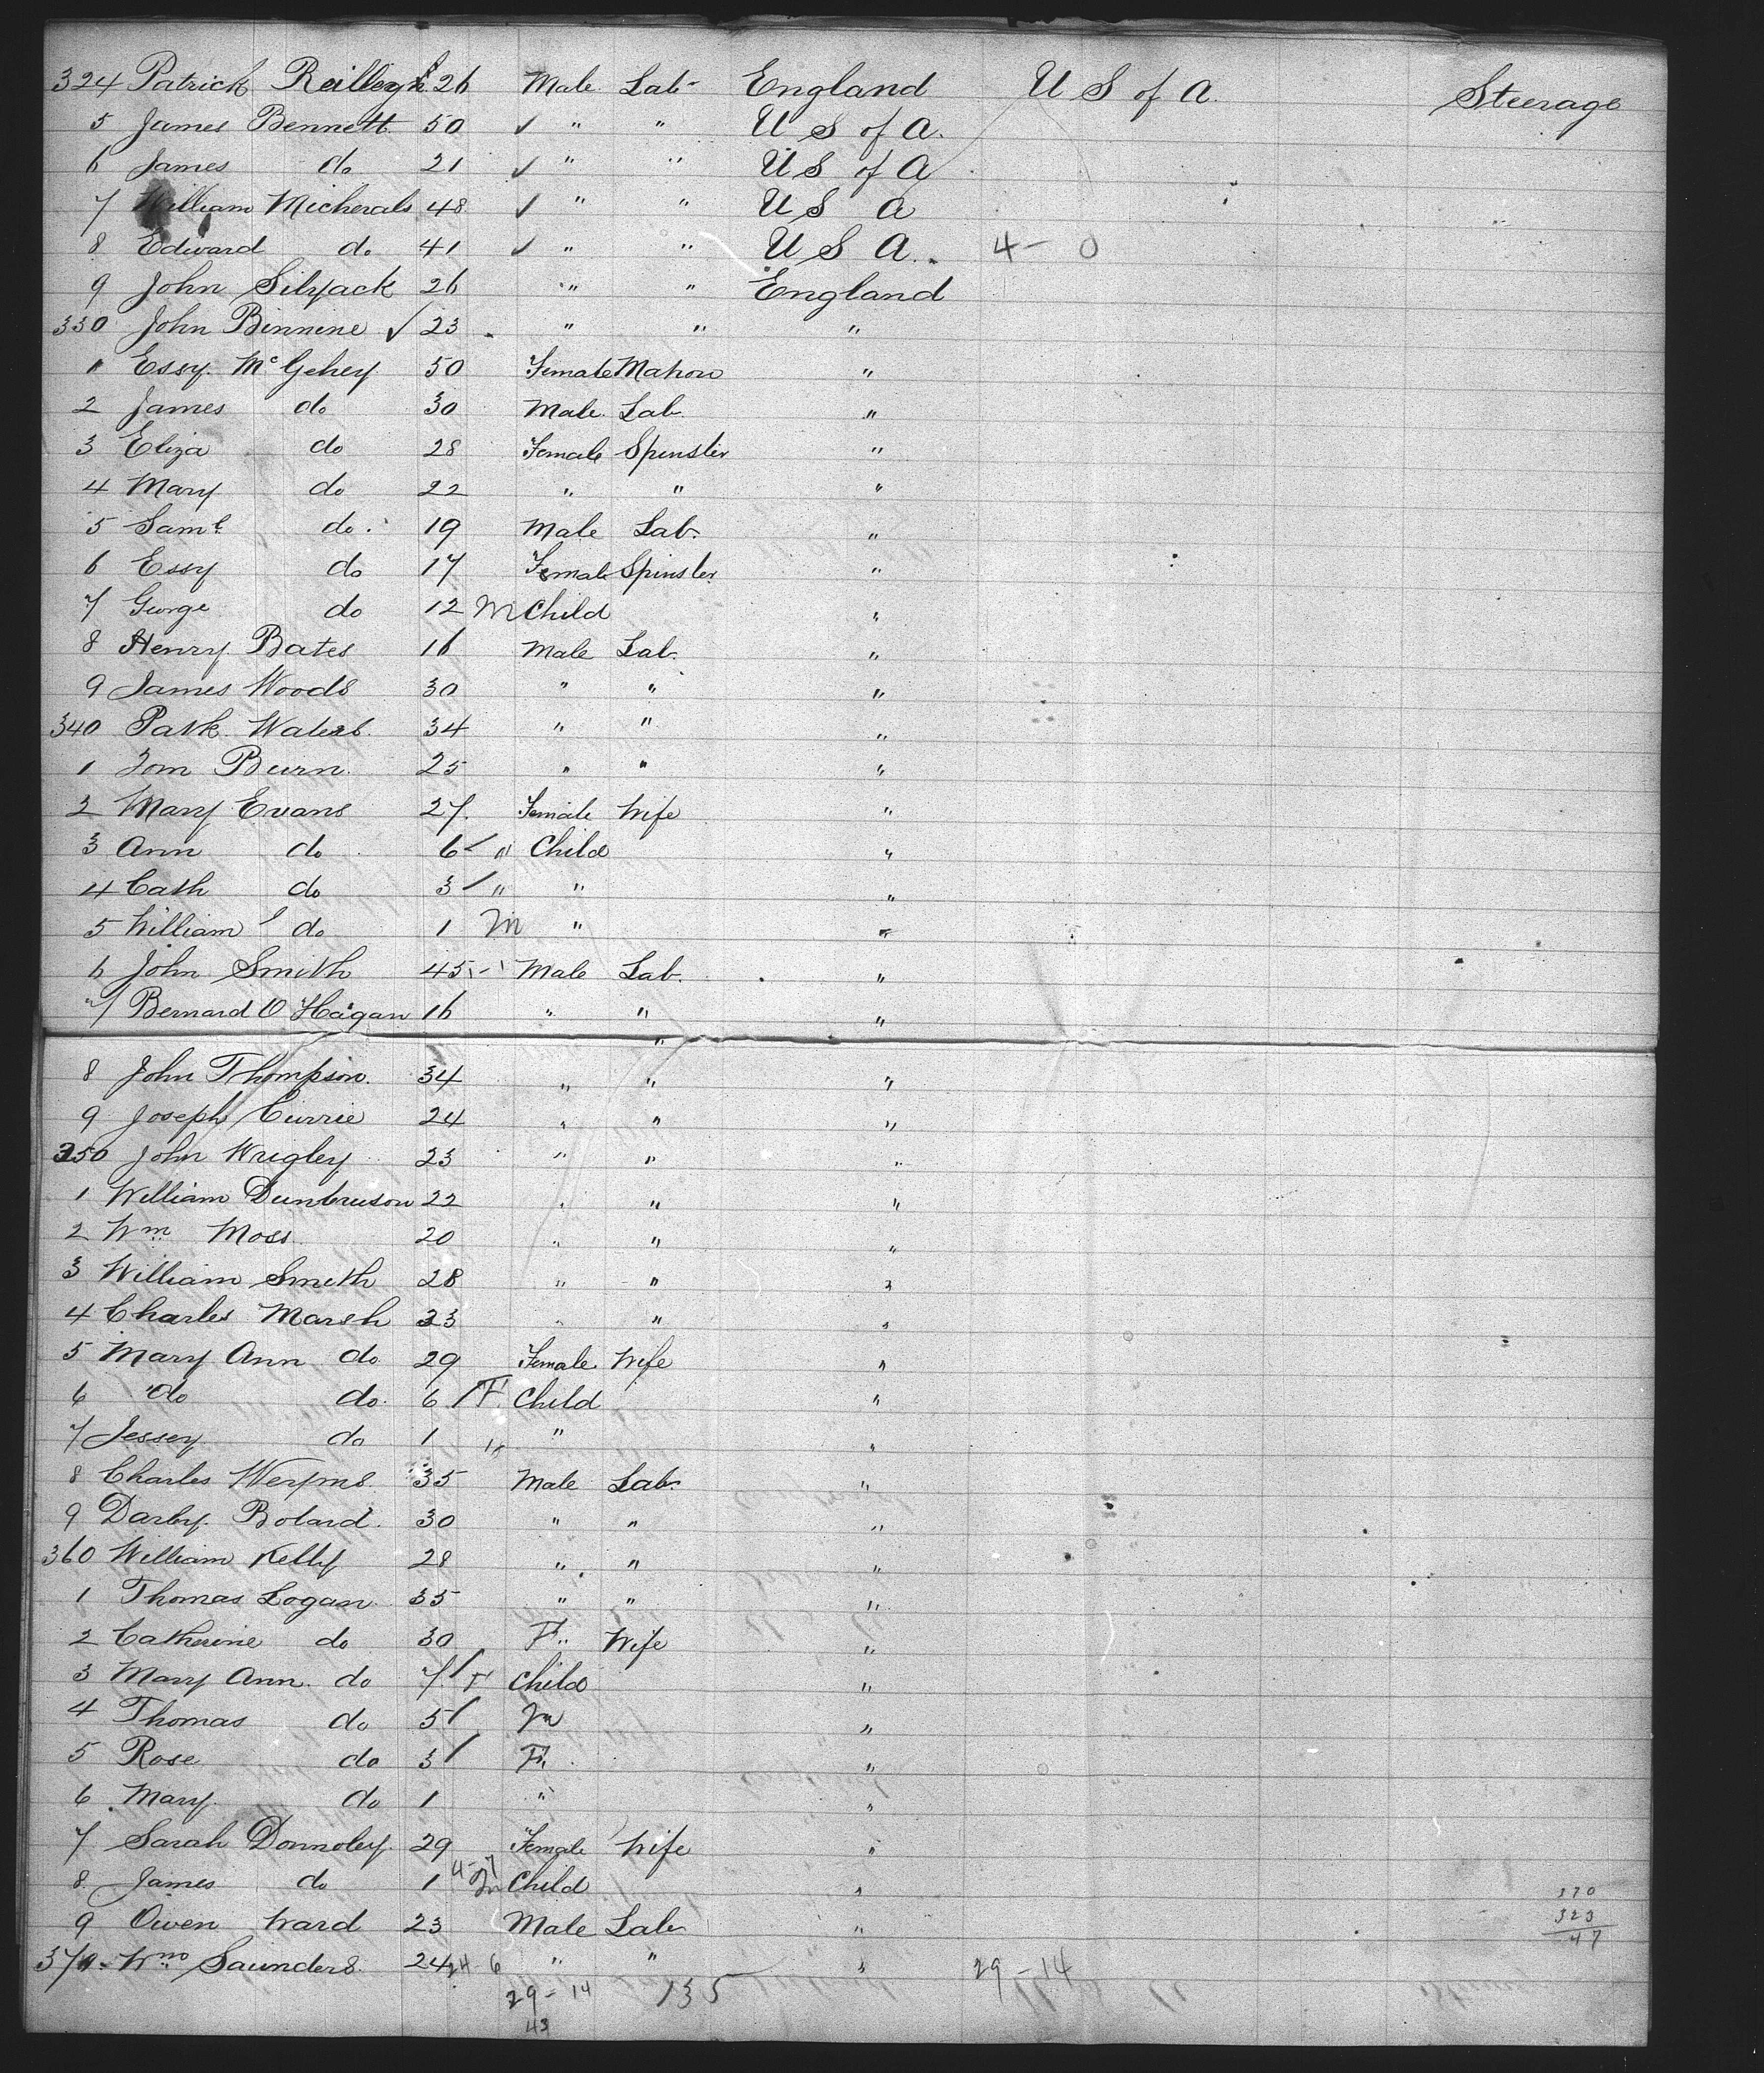 324 Patrick Reilley 26 Male Lab England U S of A. Steerage
5 James Bennett 50 ✓ " " U S of A.
6 James do 21 ✓ " " U S of A
7 William Micherals 48 ✓ " " U S A
8 Edward do 41 ✓ " " U S A. 4 - 0
9 John Silyack 26 " " England
330 John Binnine ✓ 23 " " "
" Essy McGehey 50 Female "
2 James do 30 Male Lab "
3 Eliza do 28 Female Spinster "
4 Mary do 22 " " "
5 Saml do 19 Male Lab. "
6 Essy do 17 Female Spinster "
7 George do 12 M Child "
8 Henry Bates 16 Male Lab. "
9 James Woods 30 " " "
340 Patk Waters 34 " " "
1 Tom Burn 25 " " "
2 Mary Evans 27. Female Wife "
3 Ann do 6 / " Child "
4 Cath do 3 / " " "
5 William do 1 M " "
6 John Smith 45 Male Lab. "
7 Bernard O Hagan 16 " " "
"
8 John Thompson. 34 " " "
9 Joseph Currie 24 " " "
350 John Wrigley 23 " " "
1 William 22 " " "
2 Wm Moss 20 " " "
3 William Smith 28 " " "
4 Charles Marsh 23 " " "
5 Mary Ann do 29 Female Wife "
6 do do. 6 / F Child "
7 Jessey do 1 " " "
8 Charles 35 Male Lab. "
9 Darby Boland. 30 " " "
360 William Kelly 28 " " "
1 Thomas Logan 35 " " "
2 Catherine do 30 F Wife "
3 Mary Ann do 7 / F Child "
4 Thomas do 5 / M "
5 Rose do 3 / F. "
6 Mary do 1 " "
7 Sarah Donnoley. 29 Female Wife "
8 James do 1 4-7 M Child "
9 Owen Ward 23 Male Lab "
370 Wm Saunders. 24 24 - 6 " " " 29 - 14
370
323
47
29 - 14 135
43